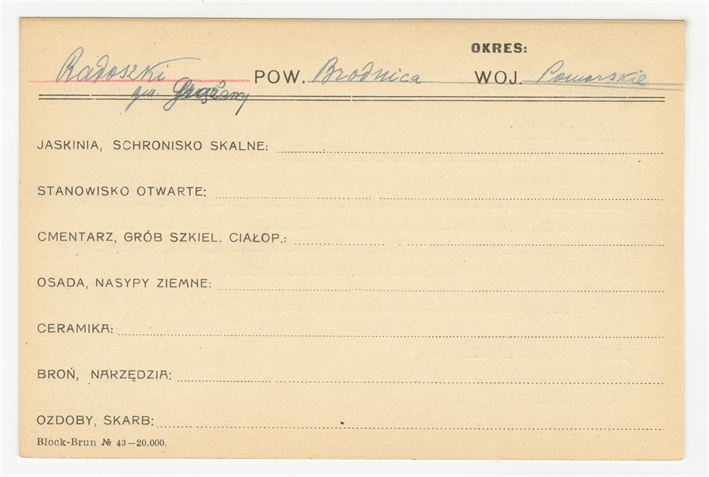 OKRES:
Radoszki POW. Brodnica WOJ. Pomorskie
gm. Grążawy
JASKINIA, SCHRONISKO SKALNE:
STANOWISKO OTWARTE:
CMENTARZ, GRÓB SZKIEL. CIAŁOP.:
OSADA, NASYPY ZIEMNE:
CERAMIKA:
BROŃ, NARZĘDZIA:
OZDOBY, SKARB:
Block-Brun № 43—20.000.